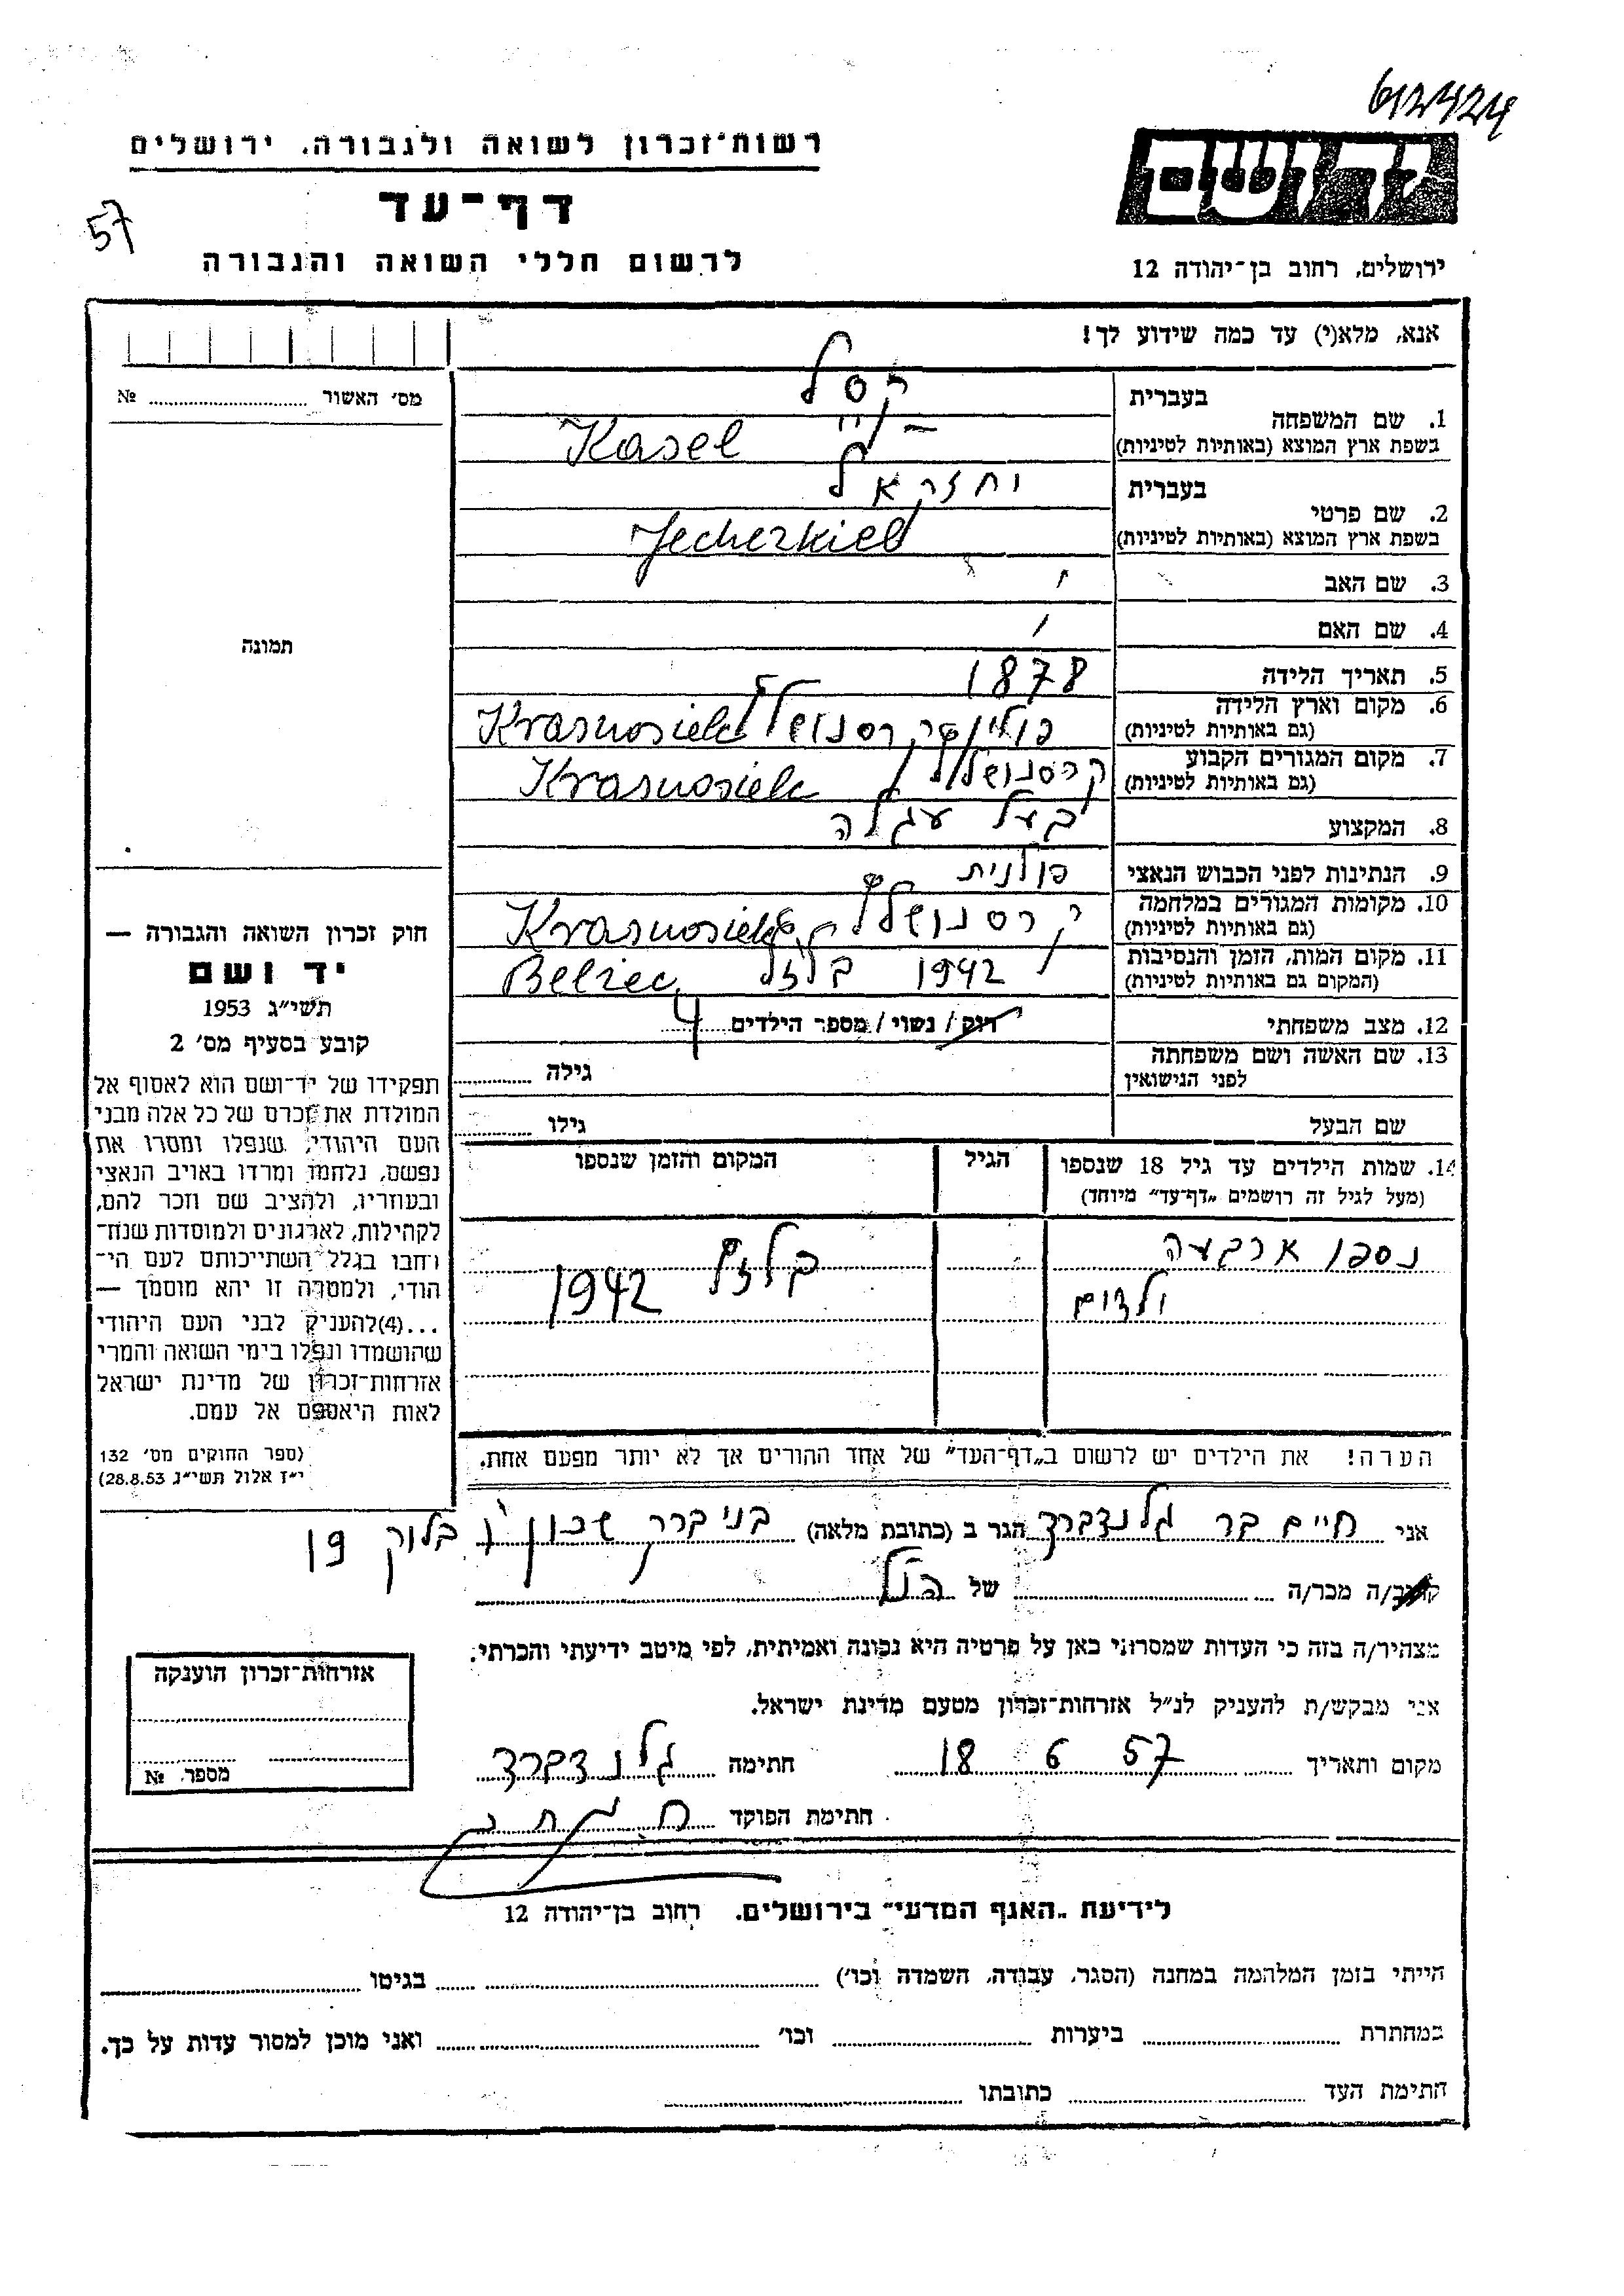 612424
רשות־זכרון לשואה ולגבורה, ירושלים
ידושם
דף־עד
57
לרשום חללי השואה והגבורה
ירושלים, רחוב בן־יהודה 12
אנא, מלא(י) עד כמה שידוע לך!
מס׳ האשור № 
1. שם המשפחה
בעברית קסל
בשפת ארץ המוצא (באותיות לטיניות) Kasel
2. שם פרטי
בעברית יחזקאל
בשפת ארץ המוצא (באותיות לטיניות) Jecherkiel
3. שם האב
4. שם האם
5. תאריך הלידה 1878
6. מקום וארץ הלידה
(גם באותיות לטיניות) פולין Krasnosielc
7. מקום המגורים הקבוע
(גם באותיות לטיניות) Krasnosielc
8. המקצוע בעל עגלה
9. הנתינות לפני הכבוש הנאצי פולנית
10. מקומות המגורים במלחמה
(גם באותיות לטיניות) Krasnosielc
11. מקום המות, הזמן והנסיבות
(המקום גם באותיות לטיניות) 1942 בלזץ Belzec
12. מצב משפחתי רוק / נשוי / מספר הילדים 4
13. שם האשה ושם משפחתה
לפני הנישואין גילה
שם הבעל גילו
14. שמות הילדים עד גיל 18 שנספו
(מעל לגיל זה רושמים „דף־עד״ מיוחד)
הגיל
המקום והזמן שנספו
נספו ארבעה בלזץ
ילדים 1942
תמונה
חוק זכרון השואה והגבורה —
יד ושם
תשי״ג 1953
קובע בסעיף מס׳ 2
תפקידו של יד־ושם הוא לאסוף אל
המולדת את זכרם של כל אלה מבני
העם היהודי, שנפלו ומסרו את
נפשם, נלחמו ומרדו באויב הנאצי
ובעוזריו, ולהציב שם וזכר להם,
לקהילות, לארגונים ולמוסדות שנח־
רחבו בגלל השתייכותם לעם הי־
הודי, ולמטרה זו יהא מוסמך —
...(4)להעניק לבני העם היהודי
שהושמדו ונפלו בימי השואה והמרי
אזרחות־זכרון של מדינת ישראל
לאות היאספם אל עמם.
(ספר החוקים מס׳ 132
י״ז אלול תשי״ג 28.8.53)
הערה! את הילדים יש לרשום ב„דף־העד״ של אחד ההורים אך לא יותר מפעם אחת.
אני חיים בר גלנדברד הגר ב (כתובת מלאה) בני ברק שכון ו בלוק 19
קרוב/ה מכר/ה של הנ״ל
מצהיר/ה בזה כי העדות שמסרתי כאן על פרטיה היא נכונה ואמיתית, לפי מיטב ידיעתי והכרתי.
אני מבקש/ת להעניק לנ״ל אזרחות־זכרון מטעם מדינת ישראל.
מקום ותאריך 18 6 57 חתימה גלנדברד
חתימת הפוקד
אזרחות־זכרון הוענקה
מספר, №
לידיעת „האגף המדעי״ בירושלים, רחוב בן־יהודה 12
הייתי בזמן המלהמה במחנה (הסגר, עבודה, השמדה וכו׳) בגיטו
במחתרת ביערות וכו׳ ואני מוכן למסור עדות על כך.
חתימת העד כתובתו